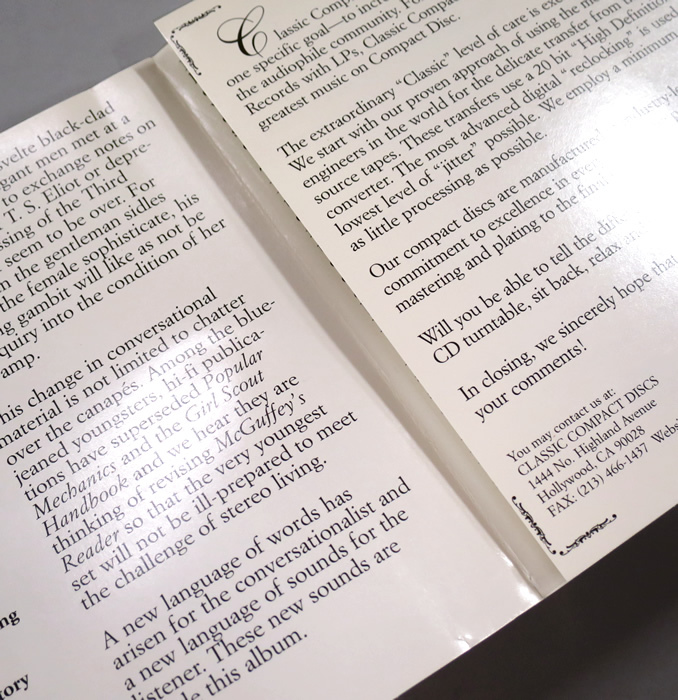 velte black-clad
gant men met at a
to exchange notes on
T. S. Eliot or depre-
ssing of the Third
seem to be over. For
n the gentleman sidles
the female sophisticate, his
ng gambit will like as not be
quiry into the condition of her
amp.
his change in conversational
material is not limited to chatter
over the canapés. Among the blue-
jeaned youngsters, hi-fi publica-
tions have superseded Popular
Mechanics and the Girl Scout
Handbook and we hear they are
thinking of revising McGuffey's
Reader so that the very youngest
set will not be ill-prepared to meet
the challenge of stereo living.
A new language of words has
arisen for the conversationalist and
a new language of sounds for the
listener. These new sounds are
e this album.
ng
tory
Classic Comp
one specific goal—to incre
the audiophile community. Fo
Records with LPs, Classic Compa
greatest music on Compact Disc.
The extraordinary "Classic" level of care is ex
We start with our proven approach of using the m
engineers in the world for the delicate transfer from the
source tapes. These transfers use a 20 bit "High Definition
converter. The most advanced digital "reclocking" is used
lowest level of "jitter" possible. We employ a minimum
as little processing as possible.
Our compact discs are manufactured
commitment to excellence in ever
mastering and plating to the fin
Will you be able to tell the diff
CD turntable, sit back, relax,
In closing, we sincerely hope that
your comments!
You may contact us at:
CLASSIC COMPACT DISCS
1444 No. Highland Avenue
Hollywood, CA 90028
FAX: (213) 466-1437 Websi